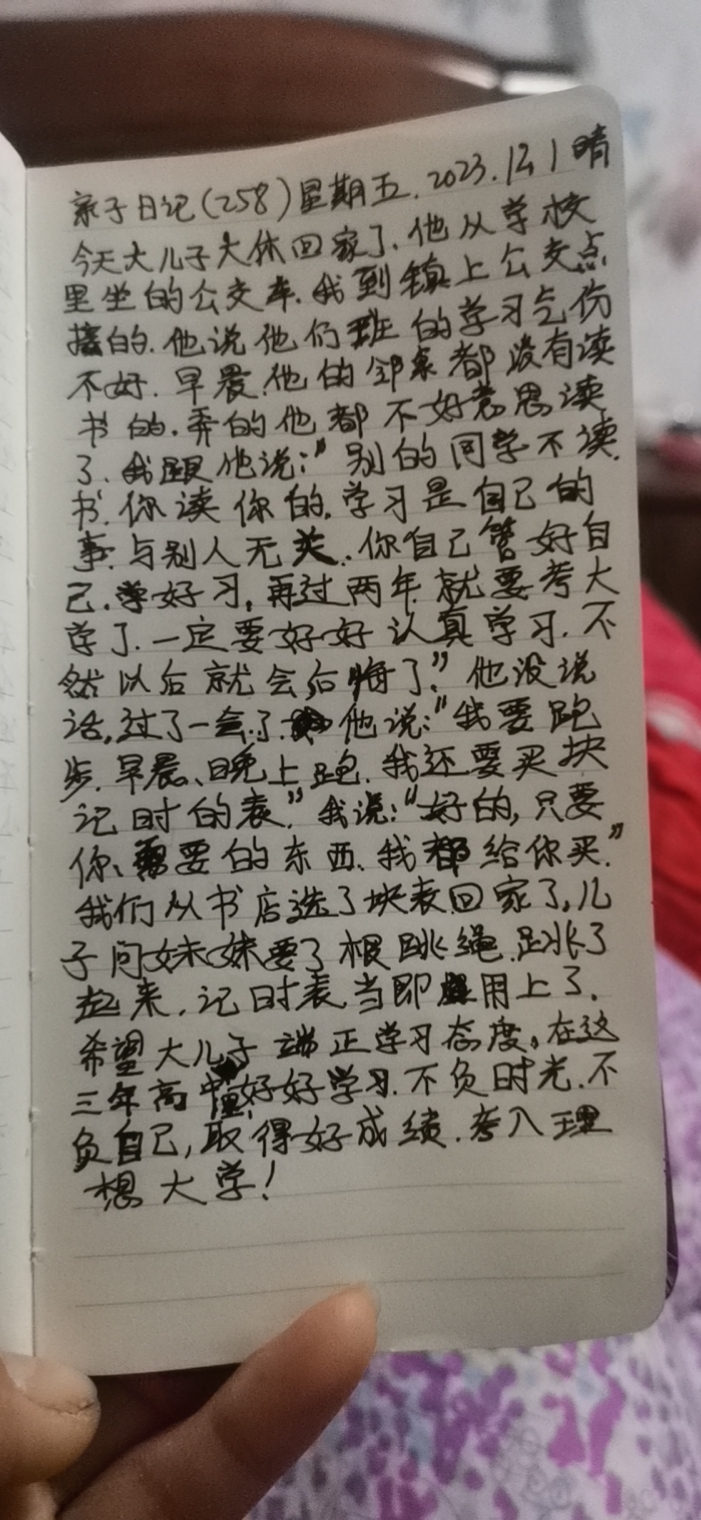 亲子日记(258)星期五.2023.12.1晴
今天大儿子大休回家了.他从学校
里坐的公交车.我到镇上公交点
接的.他说他们班的学习气伤
不好.早晨.他的邻桌都没有读
书的.弄的他都不好意思读
了.我跟他说:"别的同学不读
书.你读你的.学习是自己的
事.与别人无关.你自己管好自
己.学好习,再过两年就要考大
学了.一定要好好认真学习.不
然以后就会后悔了."他没说
话,过了一会了他说:"我要跑
步.早晨、晚上跑.我还要买块
记时的表."我说:"好的,只要
你、需要的东西、我都给你买."
我们从书店选了块表回家了,儿
子问妹妹要了根跳绳.跳了
起来.记时表当即用上了.
希望大儿子端正学习态度。在这
三年高中好好学习.不负时光.不
负自己,取得好成绩.考入理
想大学!